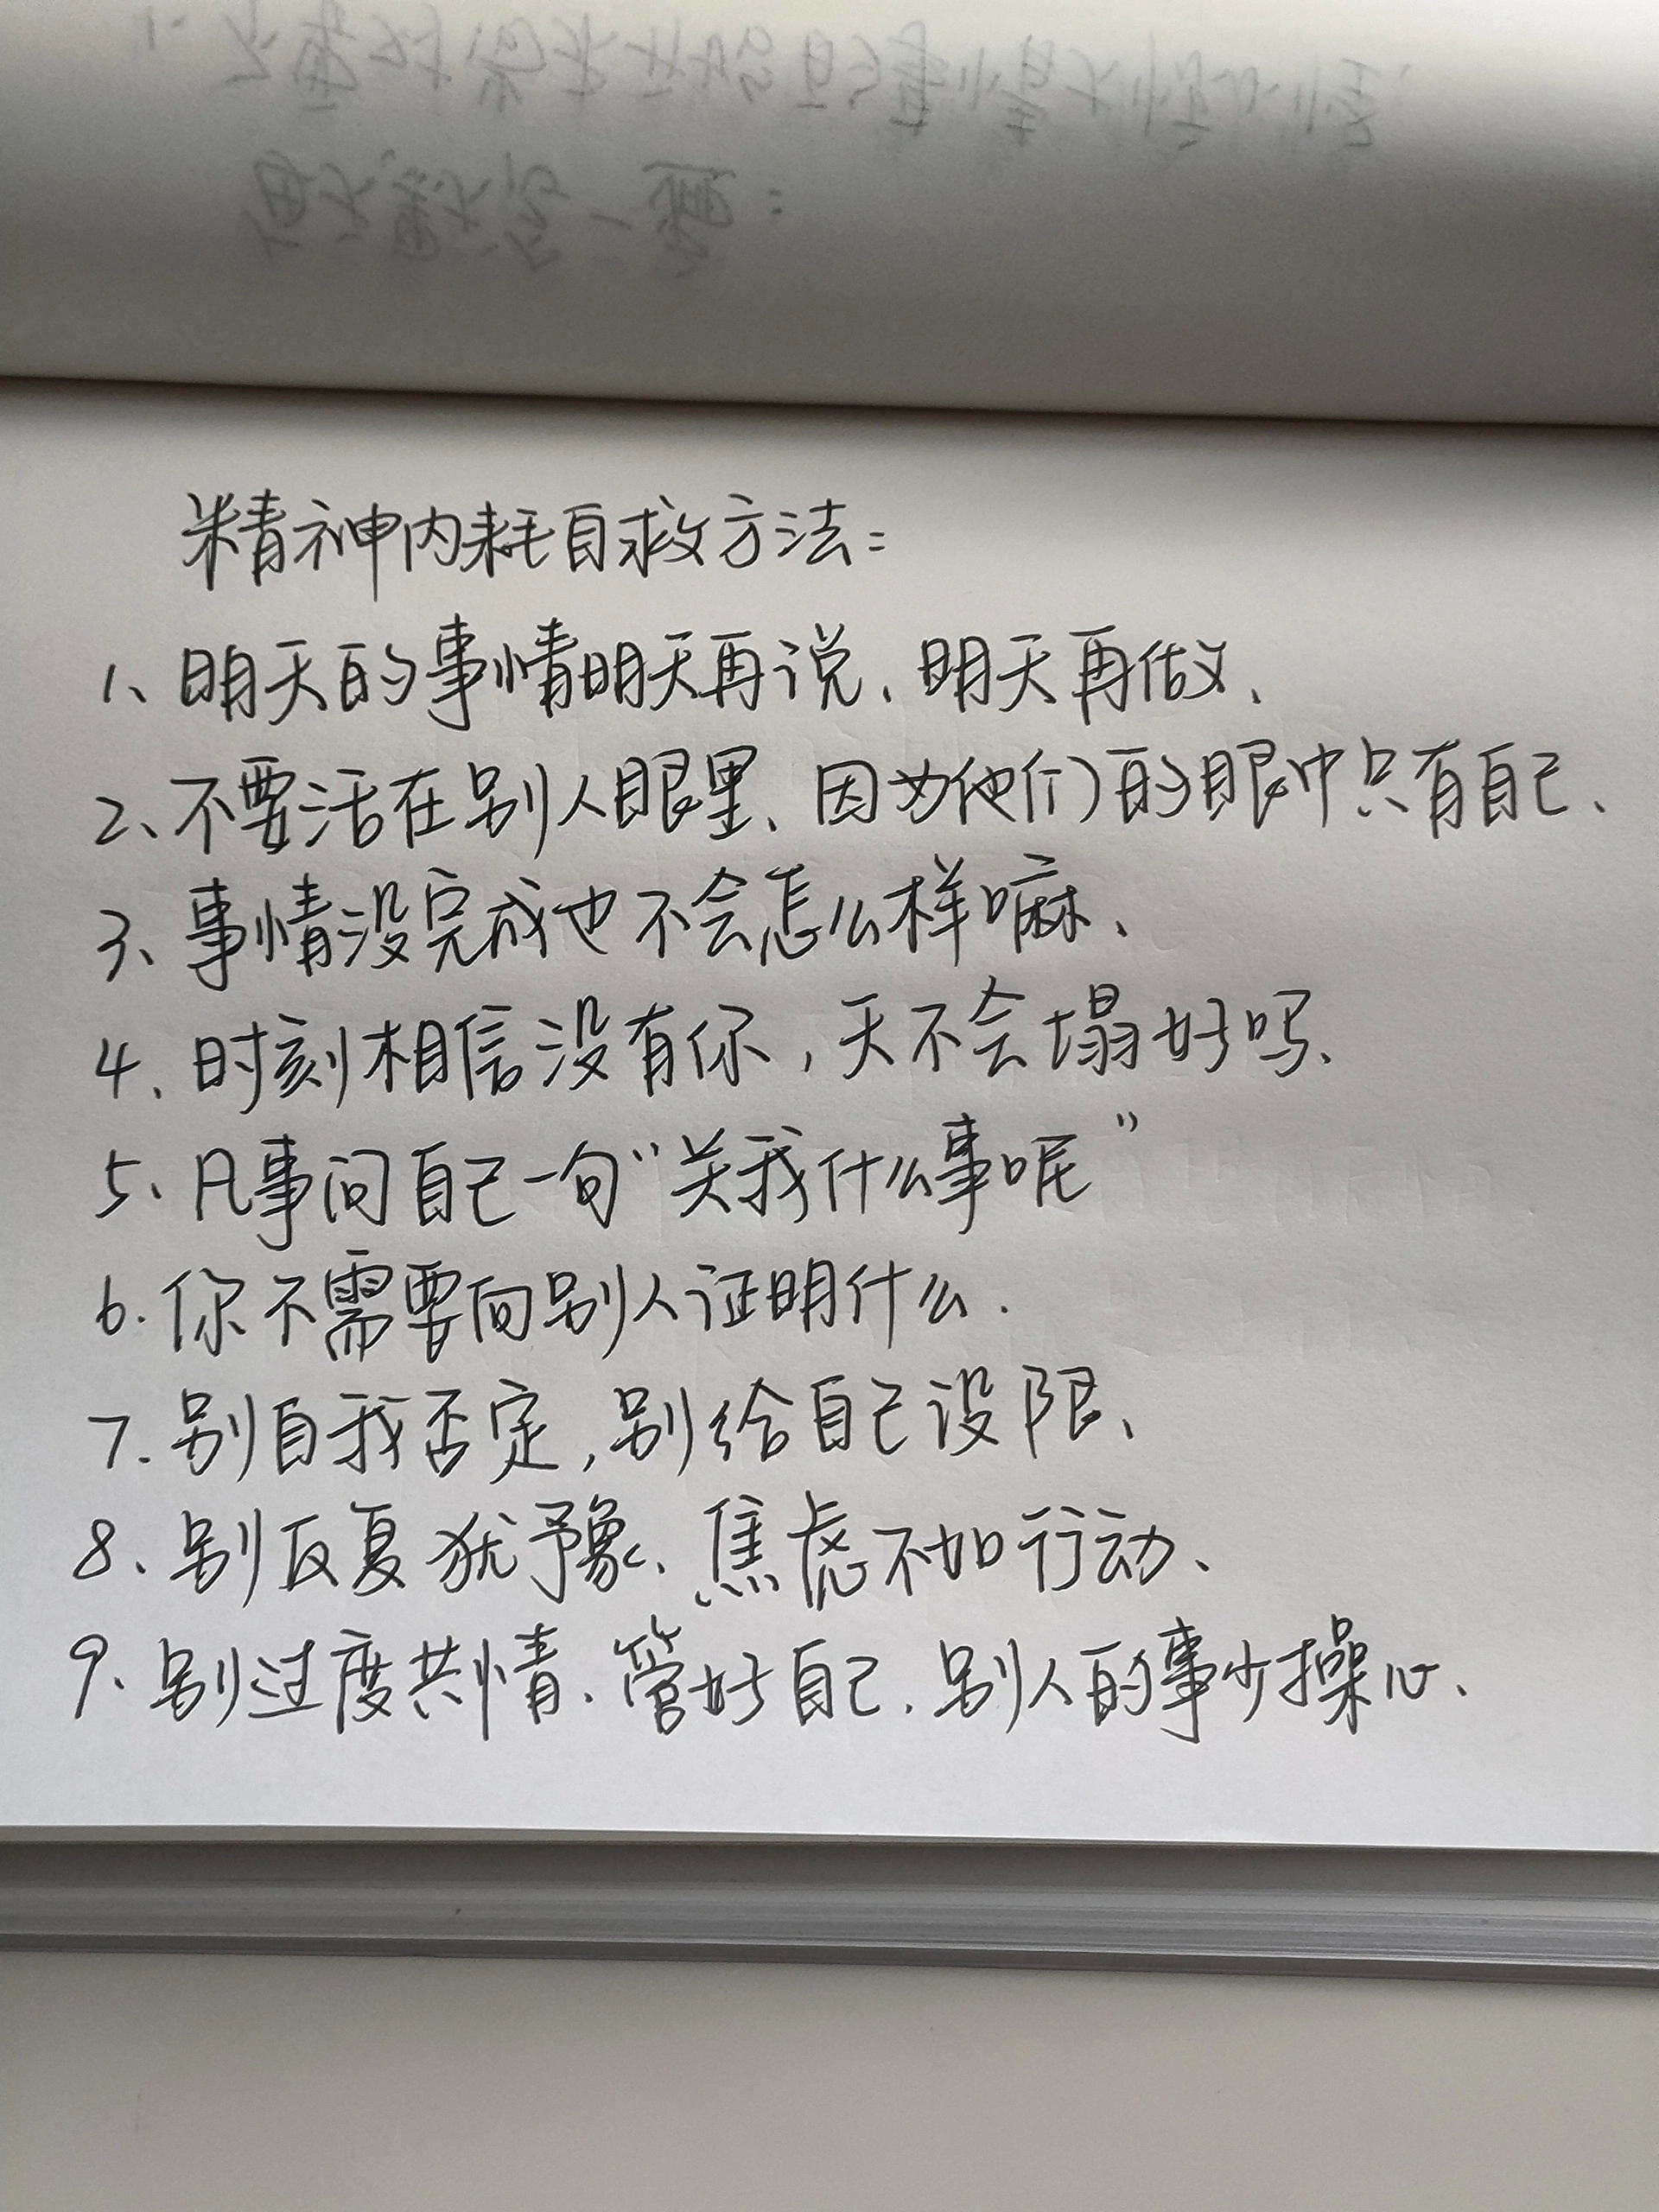 精神内耗自救方法:
1、明天的事情明天再说、明天再做、
2、不要活在别人眼里、因为他们的眼中只有自己、
3、事情没完成也不会怎么样嘛、
4、时刻相信没有你，天不会塌好吗、
5、凡事问自己一句“关我什么事呢”
6.你不需要向别人证明什么.
7.别自我否定,别给自己设限、
8、别反复犹豫、焦虑不如行动、
9、别过度共情、管好自己、别人的事少操心、